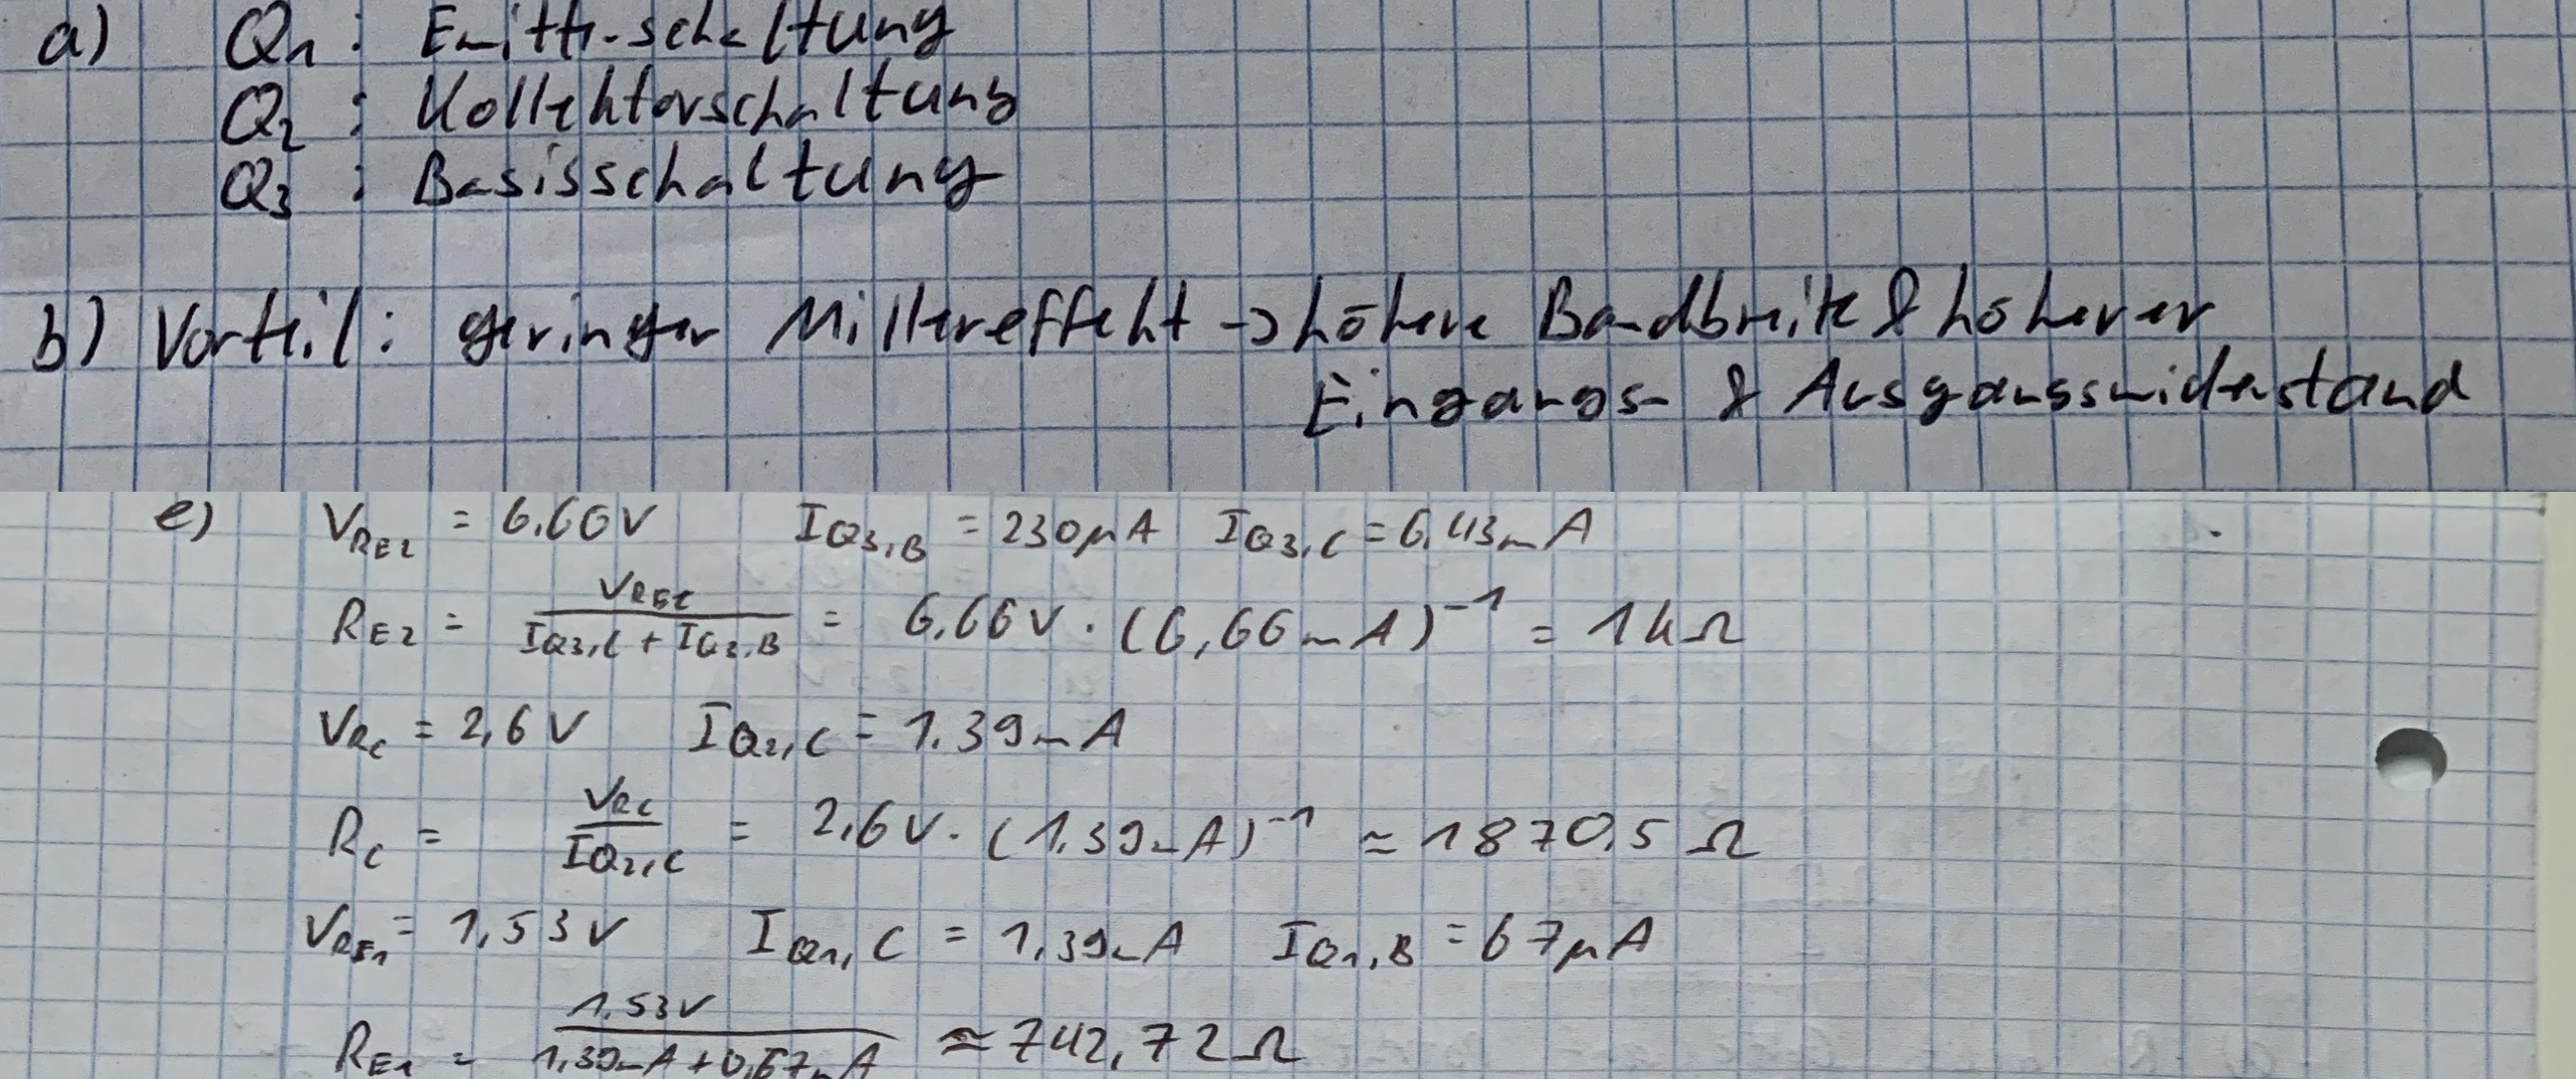 a) Q1 : Emitterschaltung
Q2 : Kollektorschaltung
Q3 : Basisschaltung
b) Vorteil: geringer Millereffekt -> höhere Bandbreite & höherer
Eingangs- & Ausgangswiderstand
e) V_RE2 = 6.66V I_Q3,B = 230µA I_Q3,C = 6,43mA
R_E2 = V_RE2 / (I_Q3,C + I_Q3,B) = 6,66V · (6,66mA)^-1 = 1kΩ
V_RC = 2,6V I_Q2,C = 1.39mA
R_C = V_RC / I_Q2,C = 2,6V · (1,39mA)^-1 ≈ 1870,5 Ω
V_RE1 = 1,53V I_Q1,C = 1,39mA I_Q1,B = 67µA
R_E1 = 1.53V / (1,39mA + 0,67µA) ≈ 742,72Ω